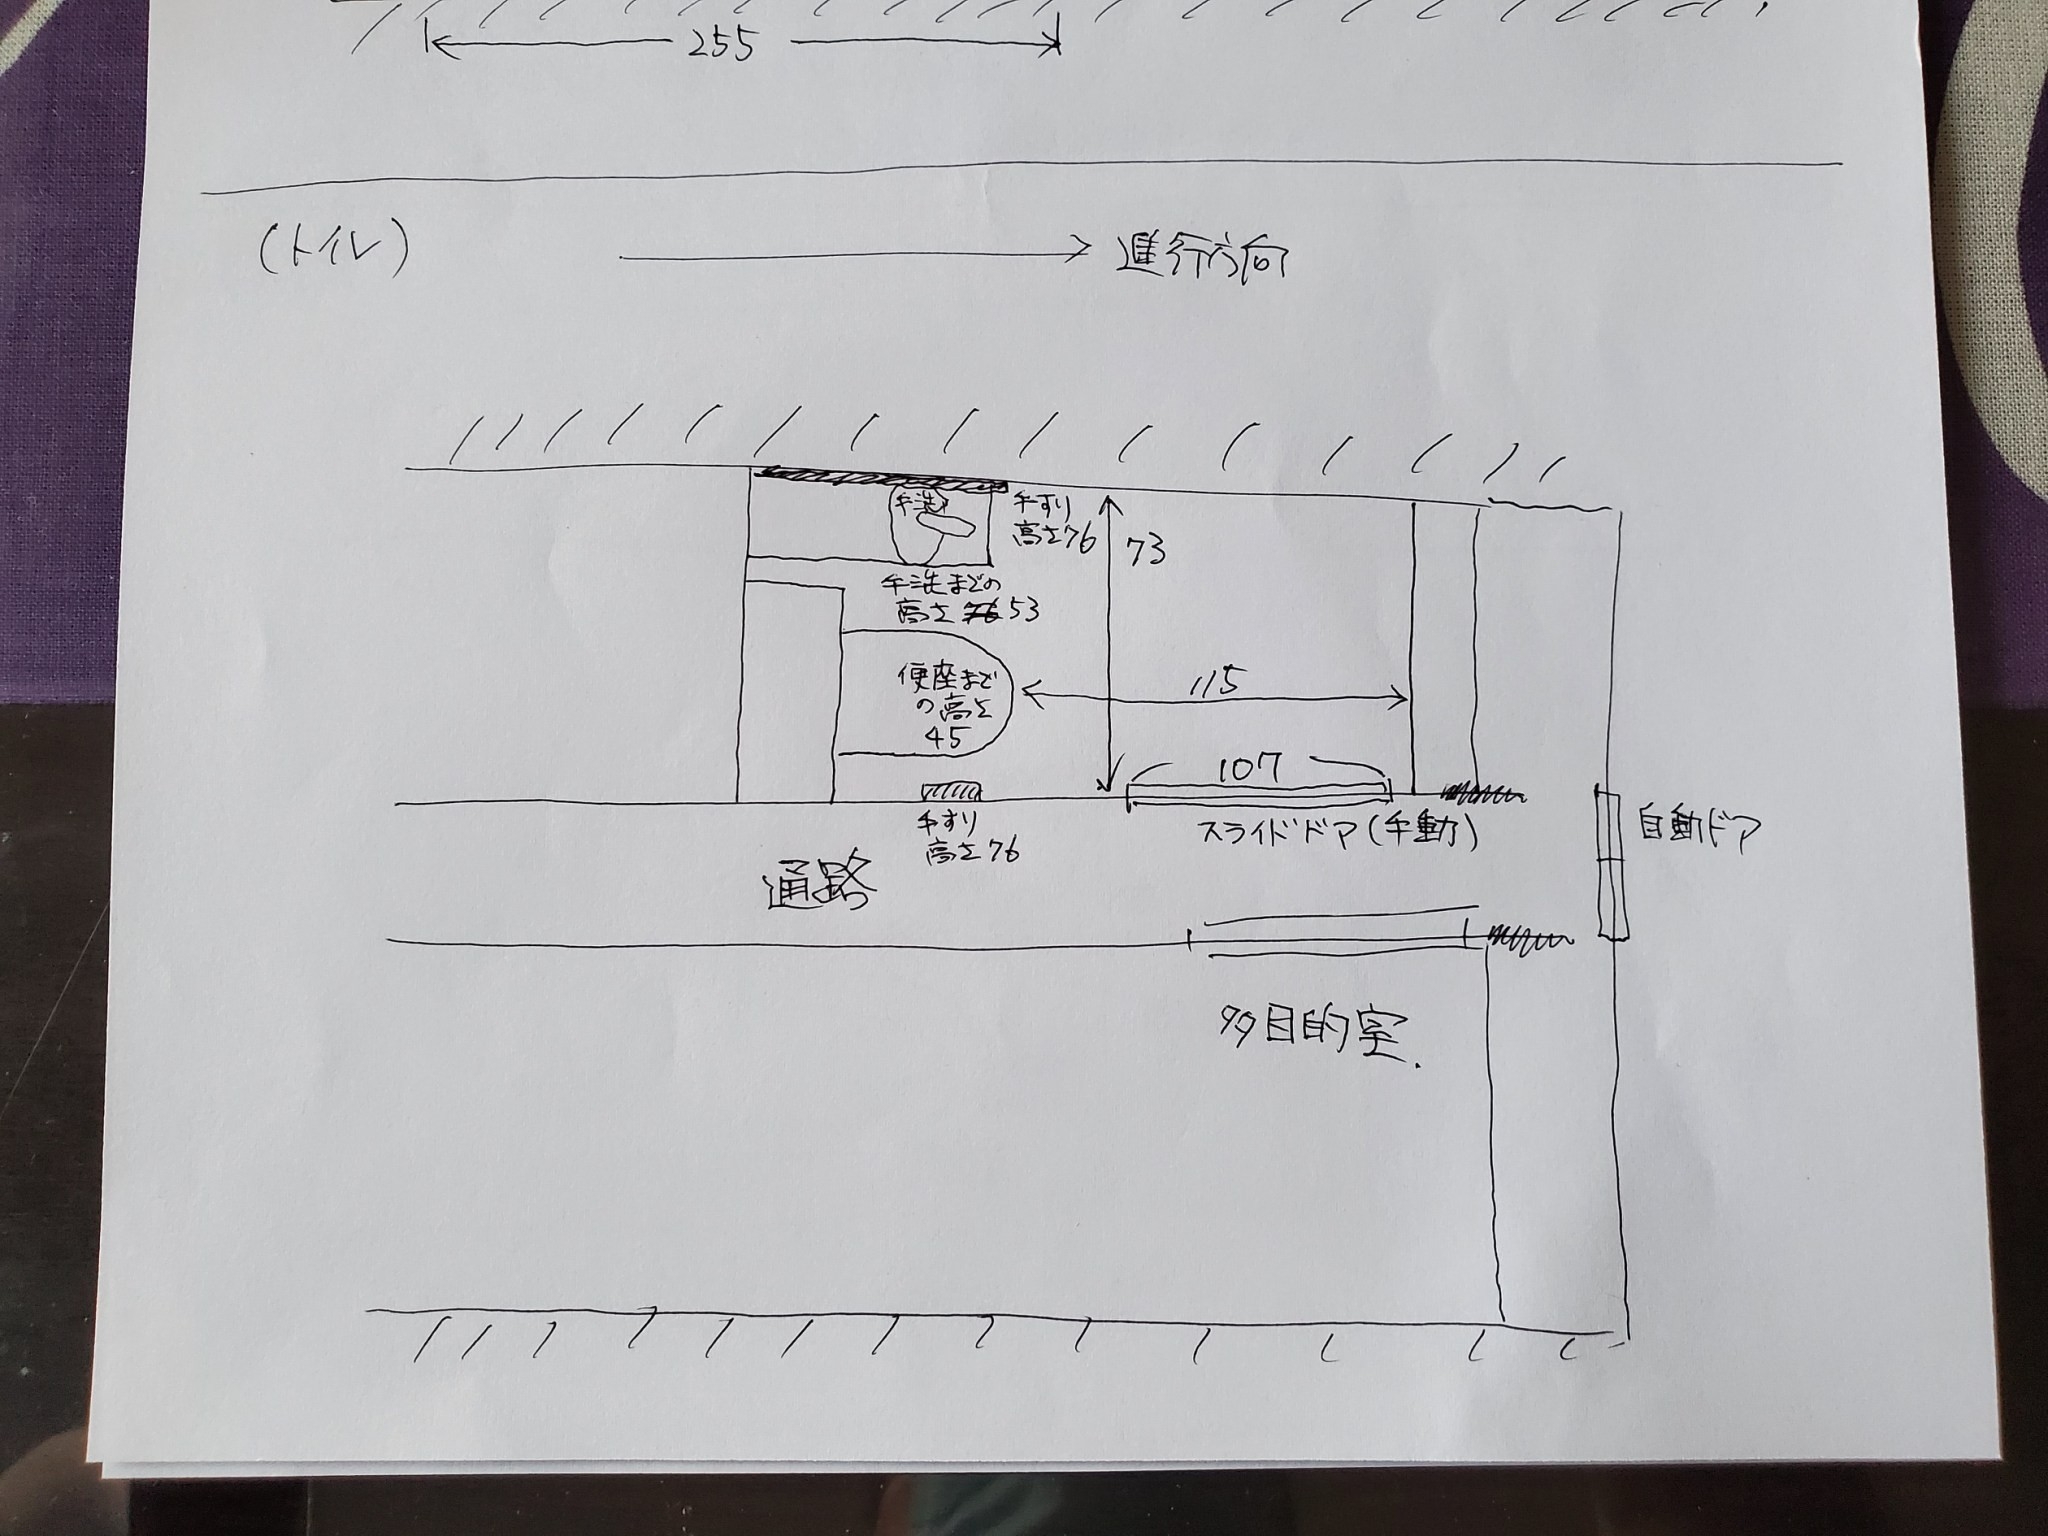 255
(トイレ)
進行方向
手洗
手すり
高さ76
73
手洗までの
高さ 53
便座まで
の高さ
45
115
107
手すり
高さ76
スライドドア(手動)
自動ドア
通路
多目的室.